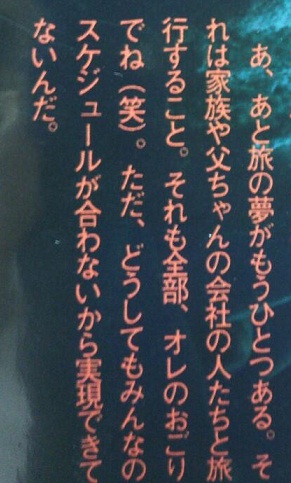 あ、あと旅の夢がもうひとつある。そ
れは家族や父ちゃんの会社の人たちと旅
行すること。それも全部、オレのおごり
でね（笑）。ただ、どうしてもみんなの
スケジュールが合わないから実現できて
ないんだ。